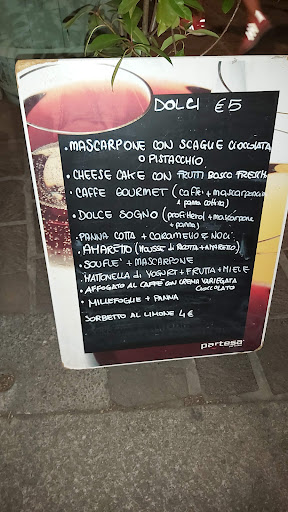 DOLCI €5
• MASCARPONE CON SCAGLIE CIOCCOLATA
O PISTACCHIO
• CHEESE CAKE CON FRUTTI BOSCO FRESCHI
• CAFFE GOURMET (caffe + mascarpone
+ panna cotta)
• DOLCE SOGNO (profiterol + mascarpone
+ panna)
• PANNA COTTA + CARAMELLO E NOCI
• AMARETTO (MOUSSE di RICOTTA + AMARETTO)
• SOUFLE' + MASCARPONE
• MATTONELLA di YOGURT + FRUTTA + MIELE
• AFFOGATO AL CAFFÈ CON CREMA VARIEGATA
CIOCCOLATO
• MILLEFOGLIE + PANNA
SORBETTO AL LIMONE 4€
partesa